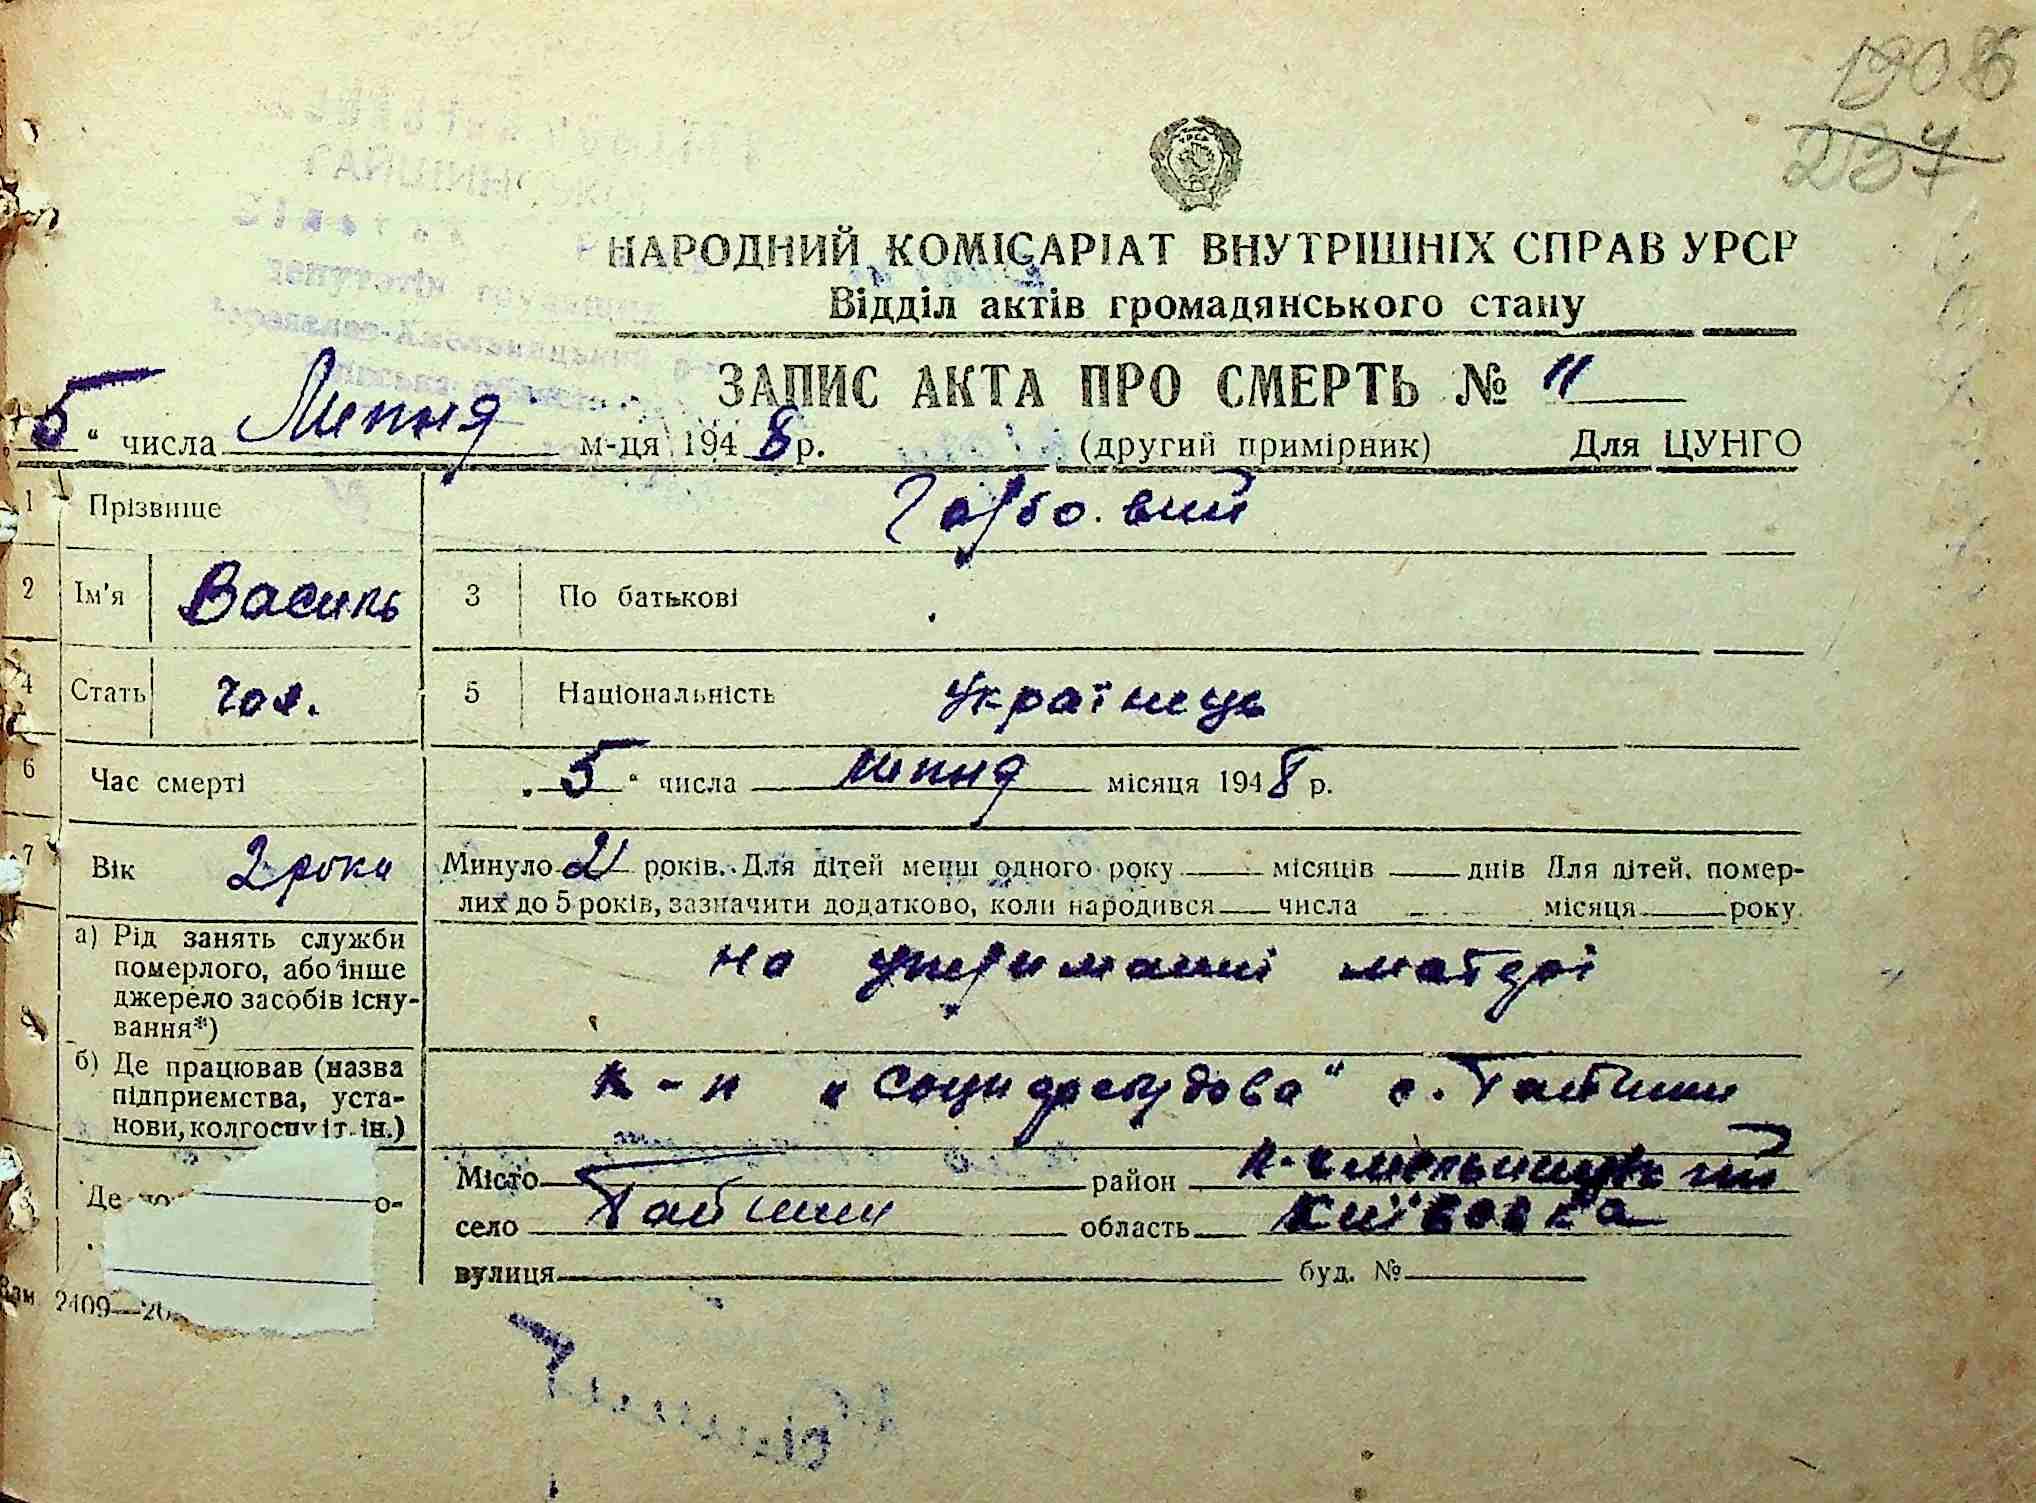 1908
237
НАРОДНИЙ КОМІСАРІАТ ВНУТРІШНІХ СПРАВ УРСР
Відділ актів громадянського стану
ЗАПИС АКТА ПРО СМЕРТЬ № 11
5 " числа Липня м-ця 1948 р. (другий примірник) Для ЦУНГО
1 Прізвище Гарбовий
2 Ім'я Василь 3 По батькові
4 Стать чол. 5 Національність Українець
6 Час смерті „5" числа липня місяця 1948 р.
7 Вік 2 роки Минуло 2 років. Для дітей менш одного року місяців днів Для дітей, помер-
лих до 5 років, зазначити додатково, коли народився числа місяця року
а) Рід занять служби померлого, або інше джерело засобів існу-вання*) на утриманні матері
б) Де працював (назва підприємства, уста-нови, колгоспу і т. ін.) к-п „Соцперебудова" с. Гайшин
Де
о-
Місто район П-Хмельницький
село Гайшин область Київська
вулиця буд. №
Зам 2409—20